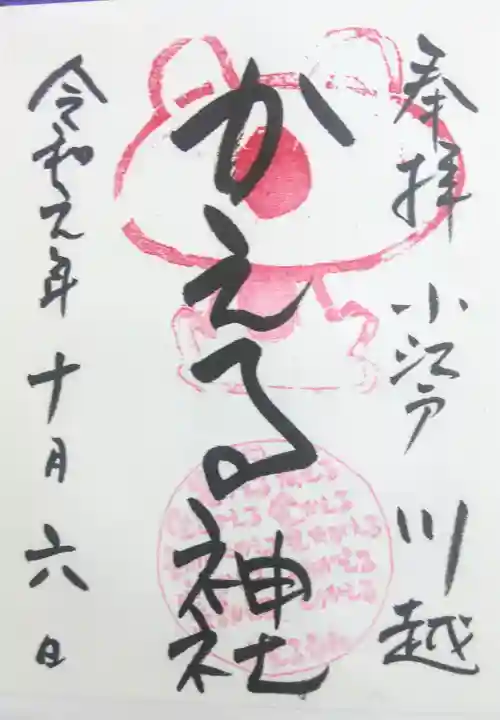 奉拝 小江戸 川越
かえる神社
令和元年 十月 六日